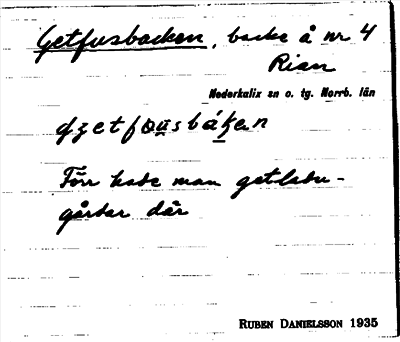 Getfusbacken, backe å nr 4
Rian
Nederkalix sn o. tg. Norrb. län
Förr hade man
gårdar där
RUBEN DANIELSSON 1935